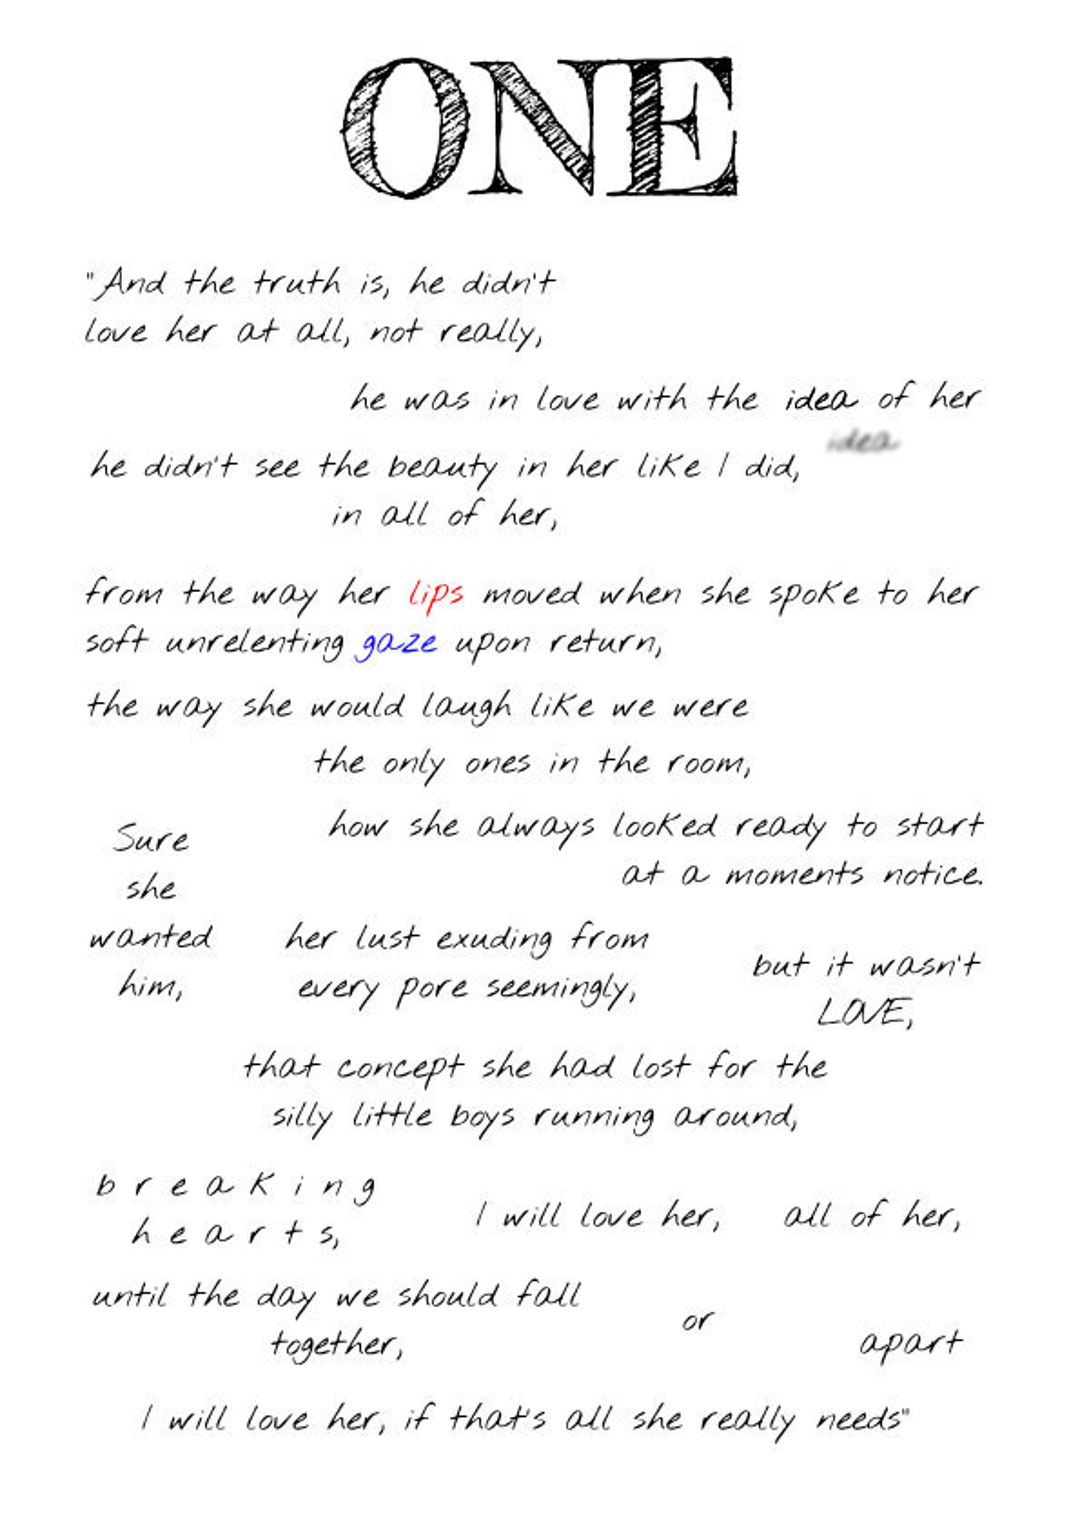 ONE
"And the truth is, he didn't
love her at all, not really,
he was in love with the idea of her
idea
he didn't see the beauty in her like I did,
in all of her,
from the way her lips moved when she spoke to her
soft unrelenting gaze upon return,
the way she would laugh like we were
the only ones in the room,
how she always looked ready to start
at a moments notice.
Sure
she
wanted
him,
her lust exuding from
every pore seemingly,
but it wasn't
LOVE,
that concept she had lost for the
silly little boys running around,
b r e a k i n g
h e a r t s,
I will love her, all of her,
until the day we should fall
together,
or
apart
I will love her, if that's all she really needs"